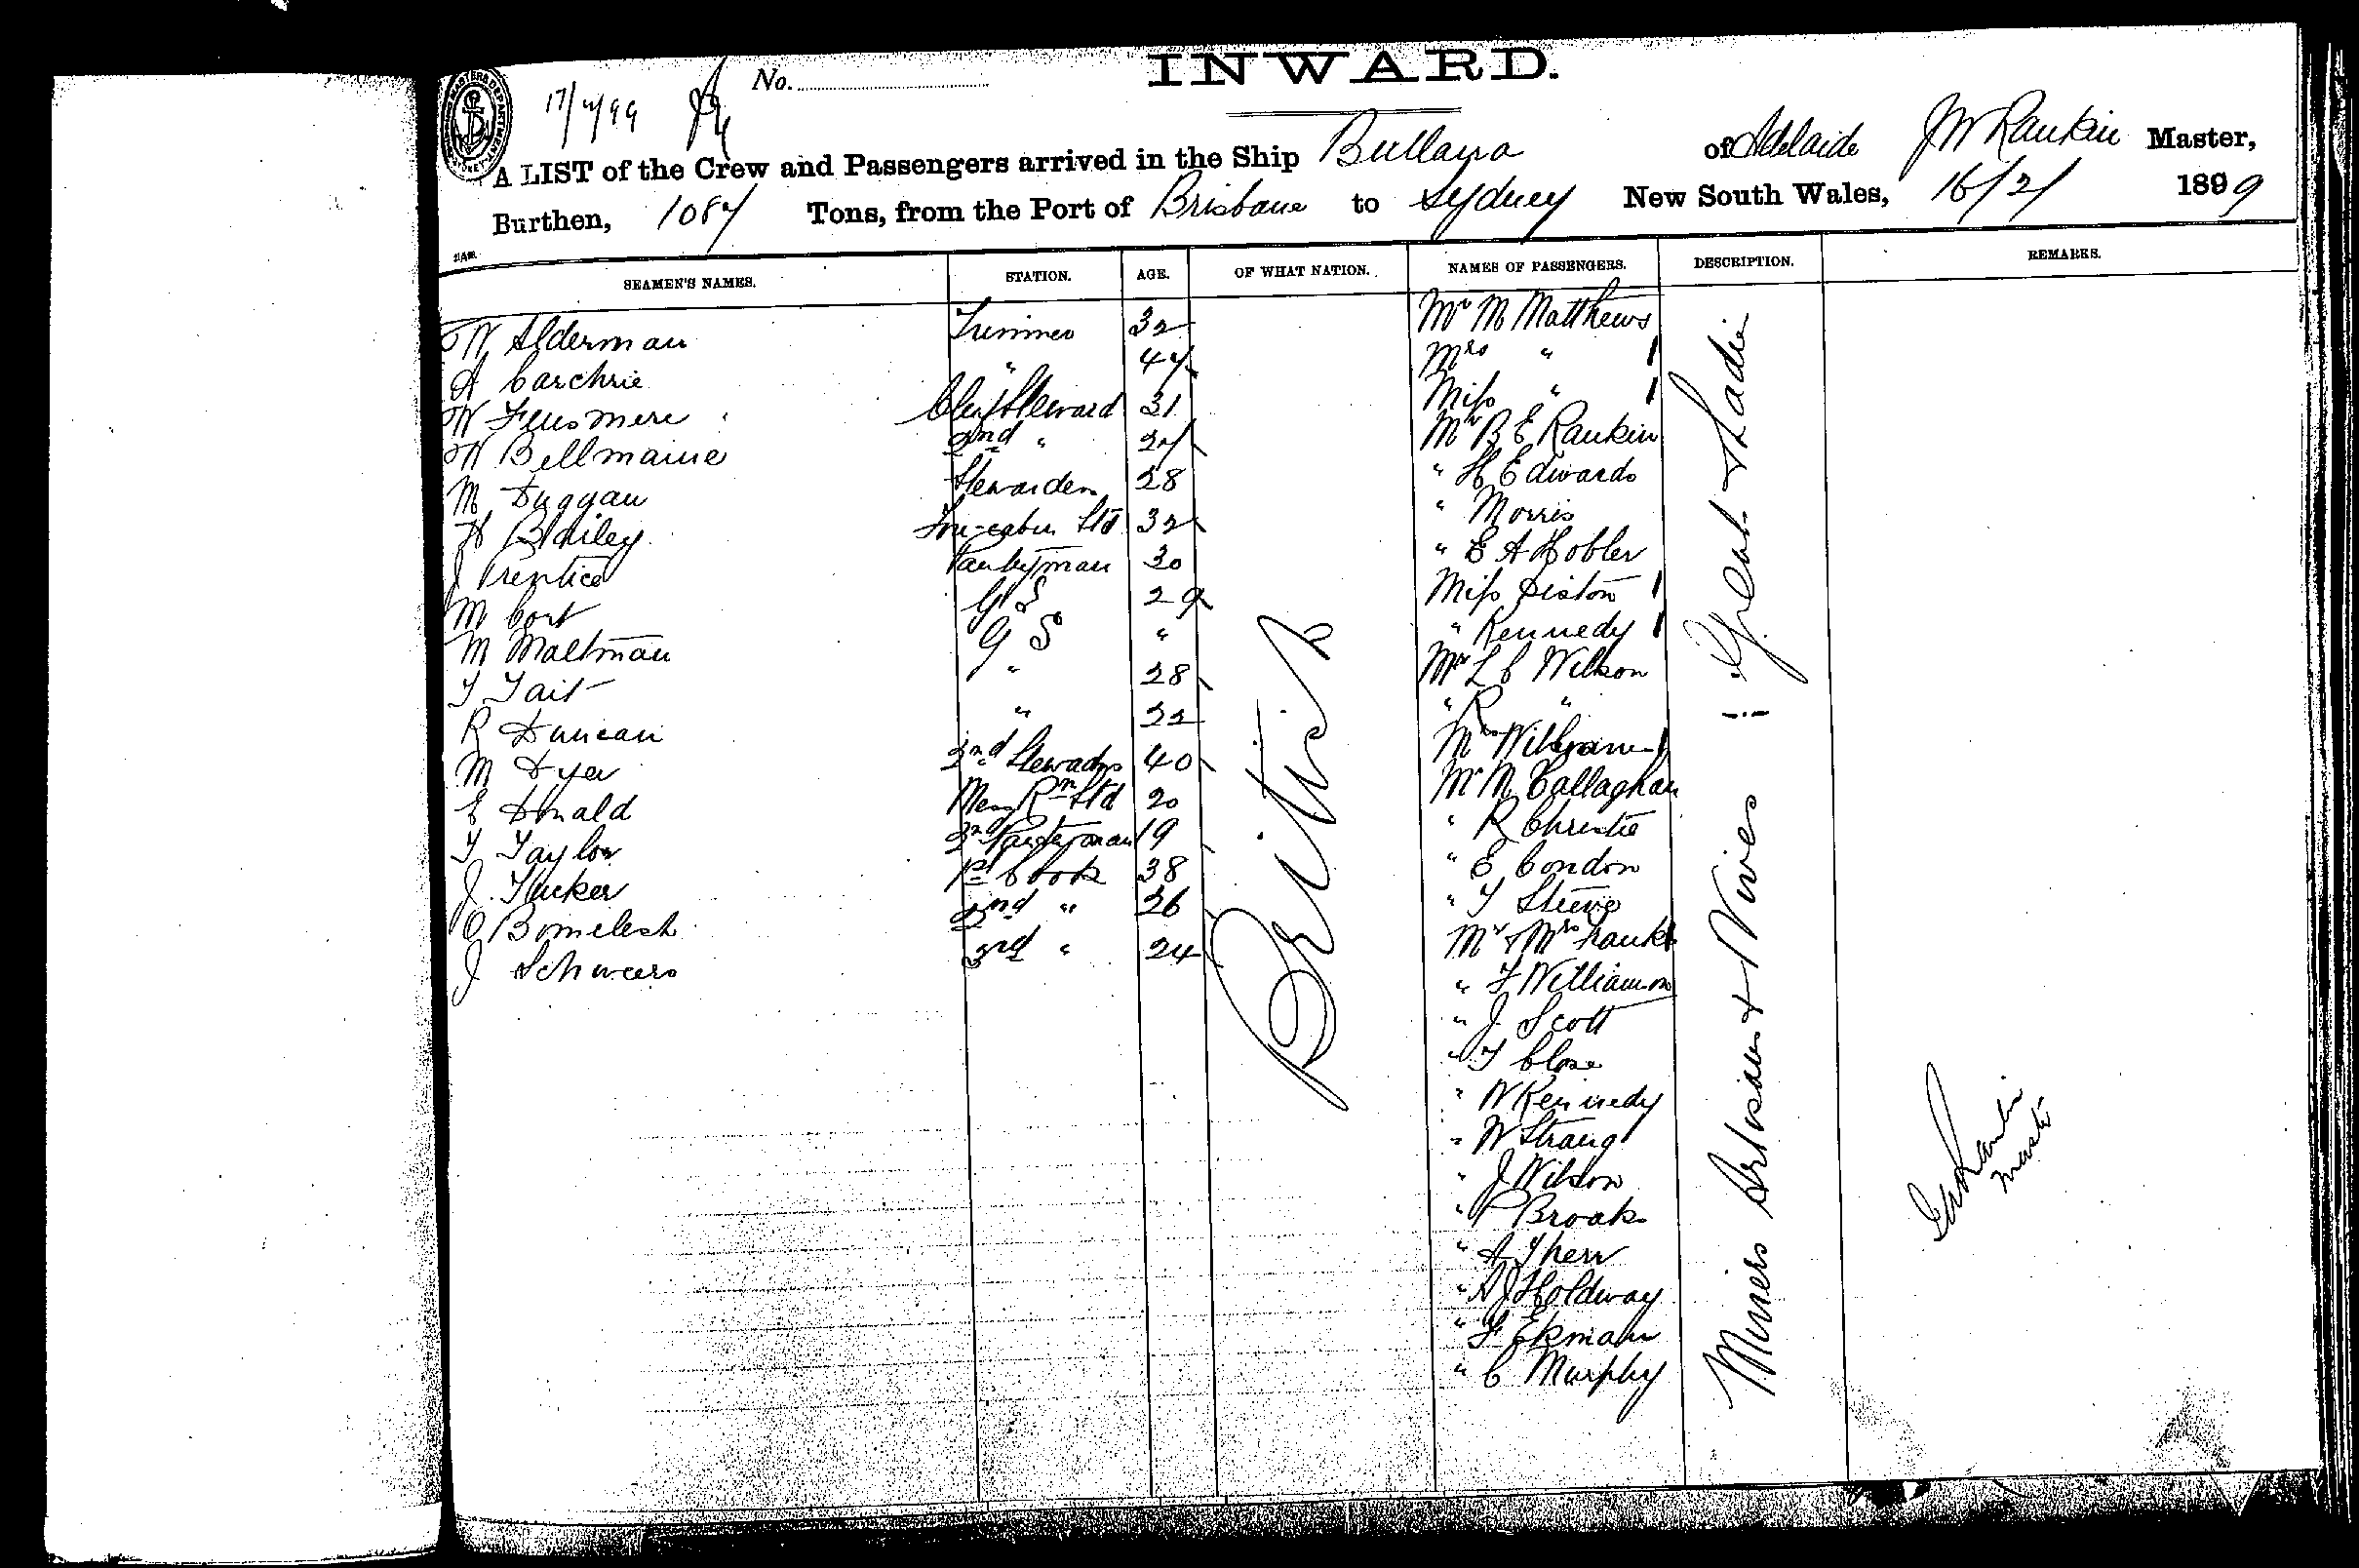 17/2/99
No.
INWARD.
A LIST of the Crew and Passengers arrived in the Ship Bullarra of Adelaide J W Rankin Master,
Burthen, 1087 Tons, from the Port of Brisbane to Sydney New South Wales, 16/2/ 1899
SEAMEN'S NAMES. STATION. AGE. OF WHAT NATION. NAMES OF PASSENGERS. DESCRIPTION. REMARKS.
W Alderman Trimmer 32
A Carchrie " 47
W Chief Steward 31
W Bellmaine 2nd " 27
M Duggan Stewardess 28
H Bailey Fore-cabin Std 32
J Prentice Pantryman 30
M Cort G S 29
M Maltman G S "
T Tait " 28
R Duncan " 22
M Dyer 2nd Stewardess 40
E Donald Mess Rm Std 20
T Taylor 2nd Pantryman 19
J Tucker 1st Cook 38
C 2nd " 26
J Schweers 3rd " 24
British
Mr M Matthews
Mrs "
Miss "
Mr B E Rankin
" H Edwards
" Morris
" E A Hobler
Miss Siston
" Kennedy
Mr L C Wilson
" R "
Mrs
Mr M Callaghan
" R Christie
" E Condon
" T
Mr & Mrs
" F Williamson
" J Scott
" T Close
" W Kennedy
" W Strang
" J Wilson
" P Brooks
" A
" A J Holdway
" F Ekman
" C Murphy
Gent & Ladies
Miners Artisans & Wives
J W Rankin
Master